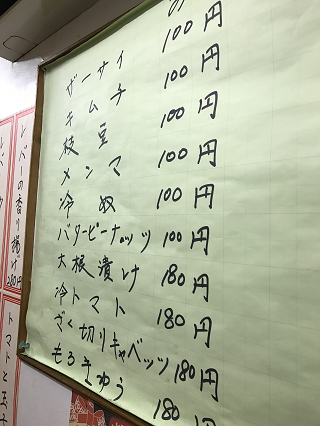 ザーサイ 100円
キムチ 100円
枝豆 100円
メンマ 100円
冷奴 100円
バターピーナッツ 100円
大根漬け 180円
冷トマト 180円
ざく切りキャベッツ 180円
もろきゅう 180円
レバーの香り揚げ
トマトと玉子